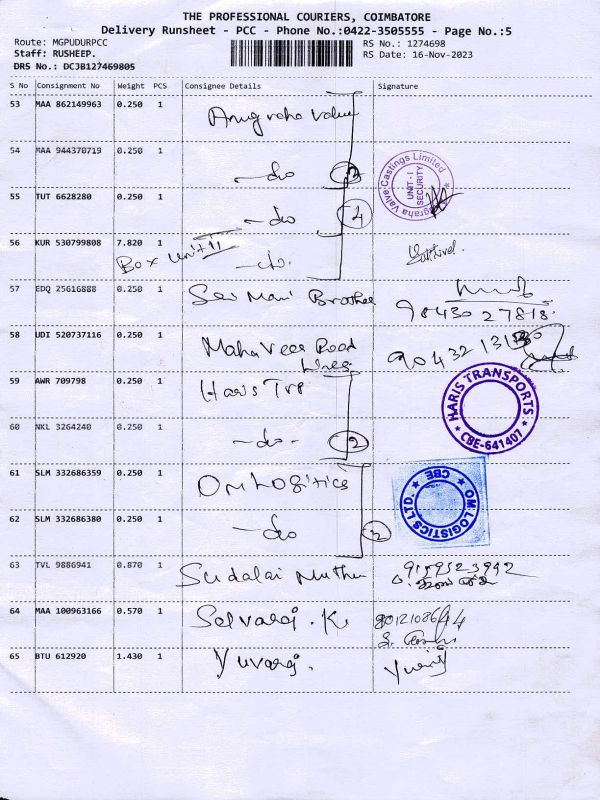 THE PROFESSIONAL COURIERS, COIMBATORE
Delivery Runsheet - PCC - Phone No.:0422-3505555 - Page No.:5
Route: MGPUDURPCC RS No.: 1274698
Staff: RUSHEEP. RS Date: 16-Nov-2023
DRS No.: DCJB127469805
S No Consignment No Weight PCS Consignee Details Signature
53 MAA 862149963 0.250 1 Anugraha Valve
54 MAA 944370719 0.250 1 -do 3
Anugraha Valve Castings Limited UNIT-I SECURITY
55 TUT 6628280 0.250 1 -do 4
56 KUR 530799808 7.820 1 -do.
Box Unit II
57 EDQ 25616888 0.250 1 Sri Mani Brothers
9843027818.
58 UDI 520737116 0.250 1 Mahaveer Road Lines
59 AWR 709798 0.250 1 Haris Tvp
HARIS TRANSPORTS CBE-641407
60 NKL 3264240 0.250 1 -do- 2
61 SLM 332686359 0.250 1 Om Logitics
OM LOGISTICS LTD. CBE
62 SLM 332686380 0.250 1 -do 2
63 TVL 9886941 0.870 1 Sudalai Muthu
64 MAA 100963166 0.570 1 Selvaraj. K
65 BTU 612920 1.430 1 Yuvaraj.